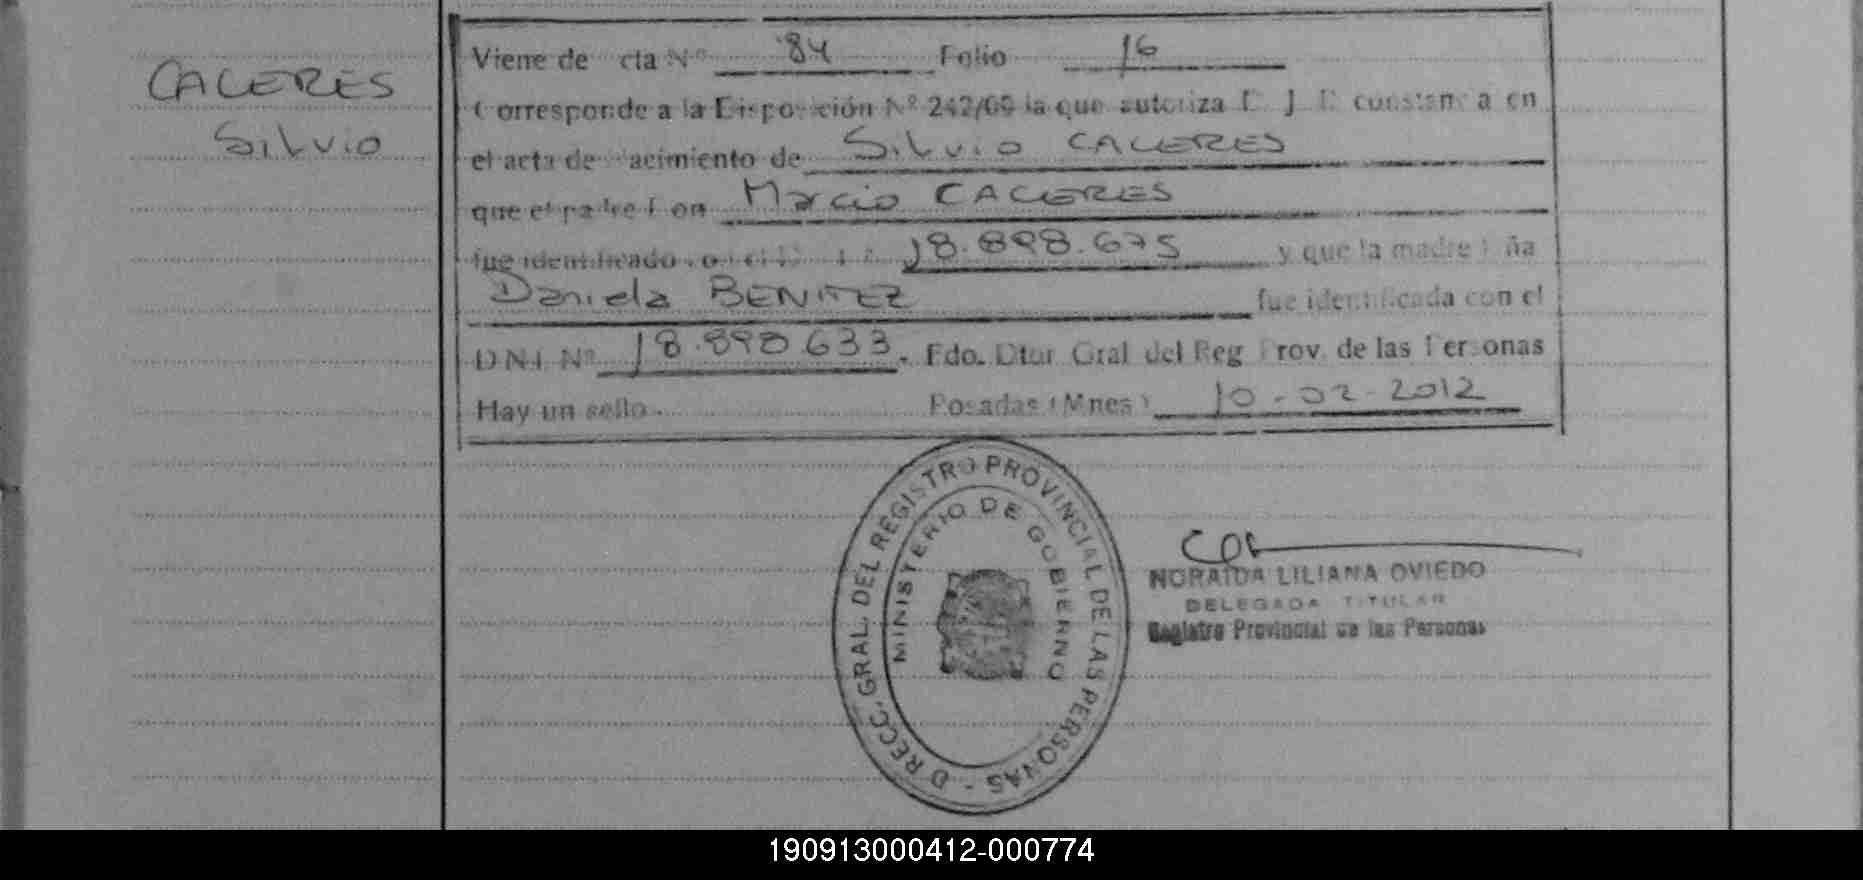 CACERES
Silvio
Viene de cta Nº 84 Folio 16
Corresponde a la Disposición Nº 242/09 la que autoriza D J D constancia en
el acta de nacimiento de Silvio CACERES
que el padre Don Marcio CACERES
fue identificado 18.898.675 y que la madre Doña
Daniela BENITEZ fue identificada con el
DNI Nº 18.898.633. Fdo. Dtor Gral del Reg Prov. de las Personas
Hay un sello. Posadas (Mnes) 10-02-2012
DIRECC. GRAL. DEL REGISTRO PROVINCIAL DE LAS PERSONAS -
MINISTERIO DE GOBIERNO
NORAIDA LILIANA OVIEDO
DELEGADA TITULAR
Registro Provincial de las Personas
190913000412-000774